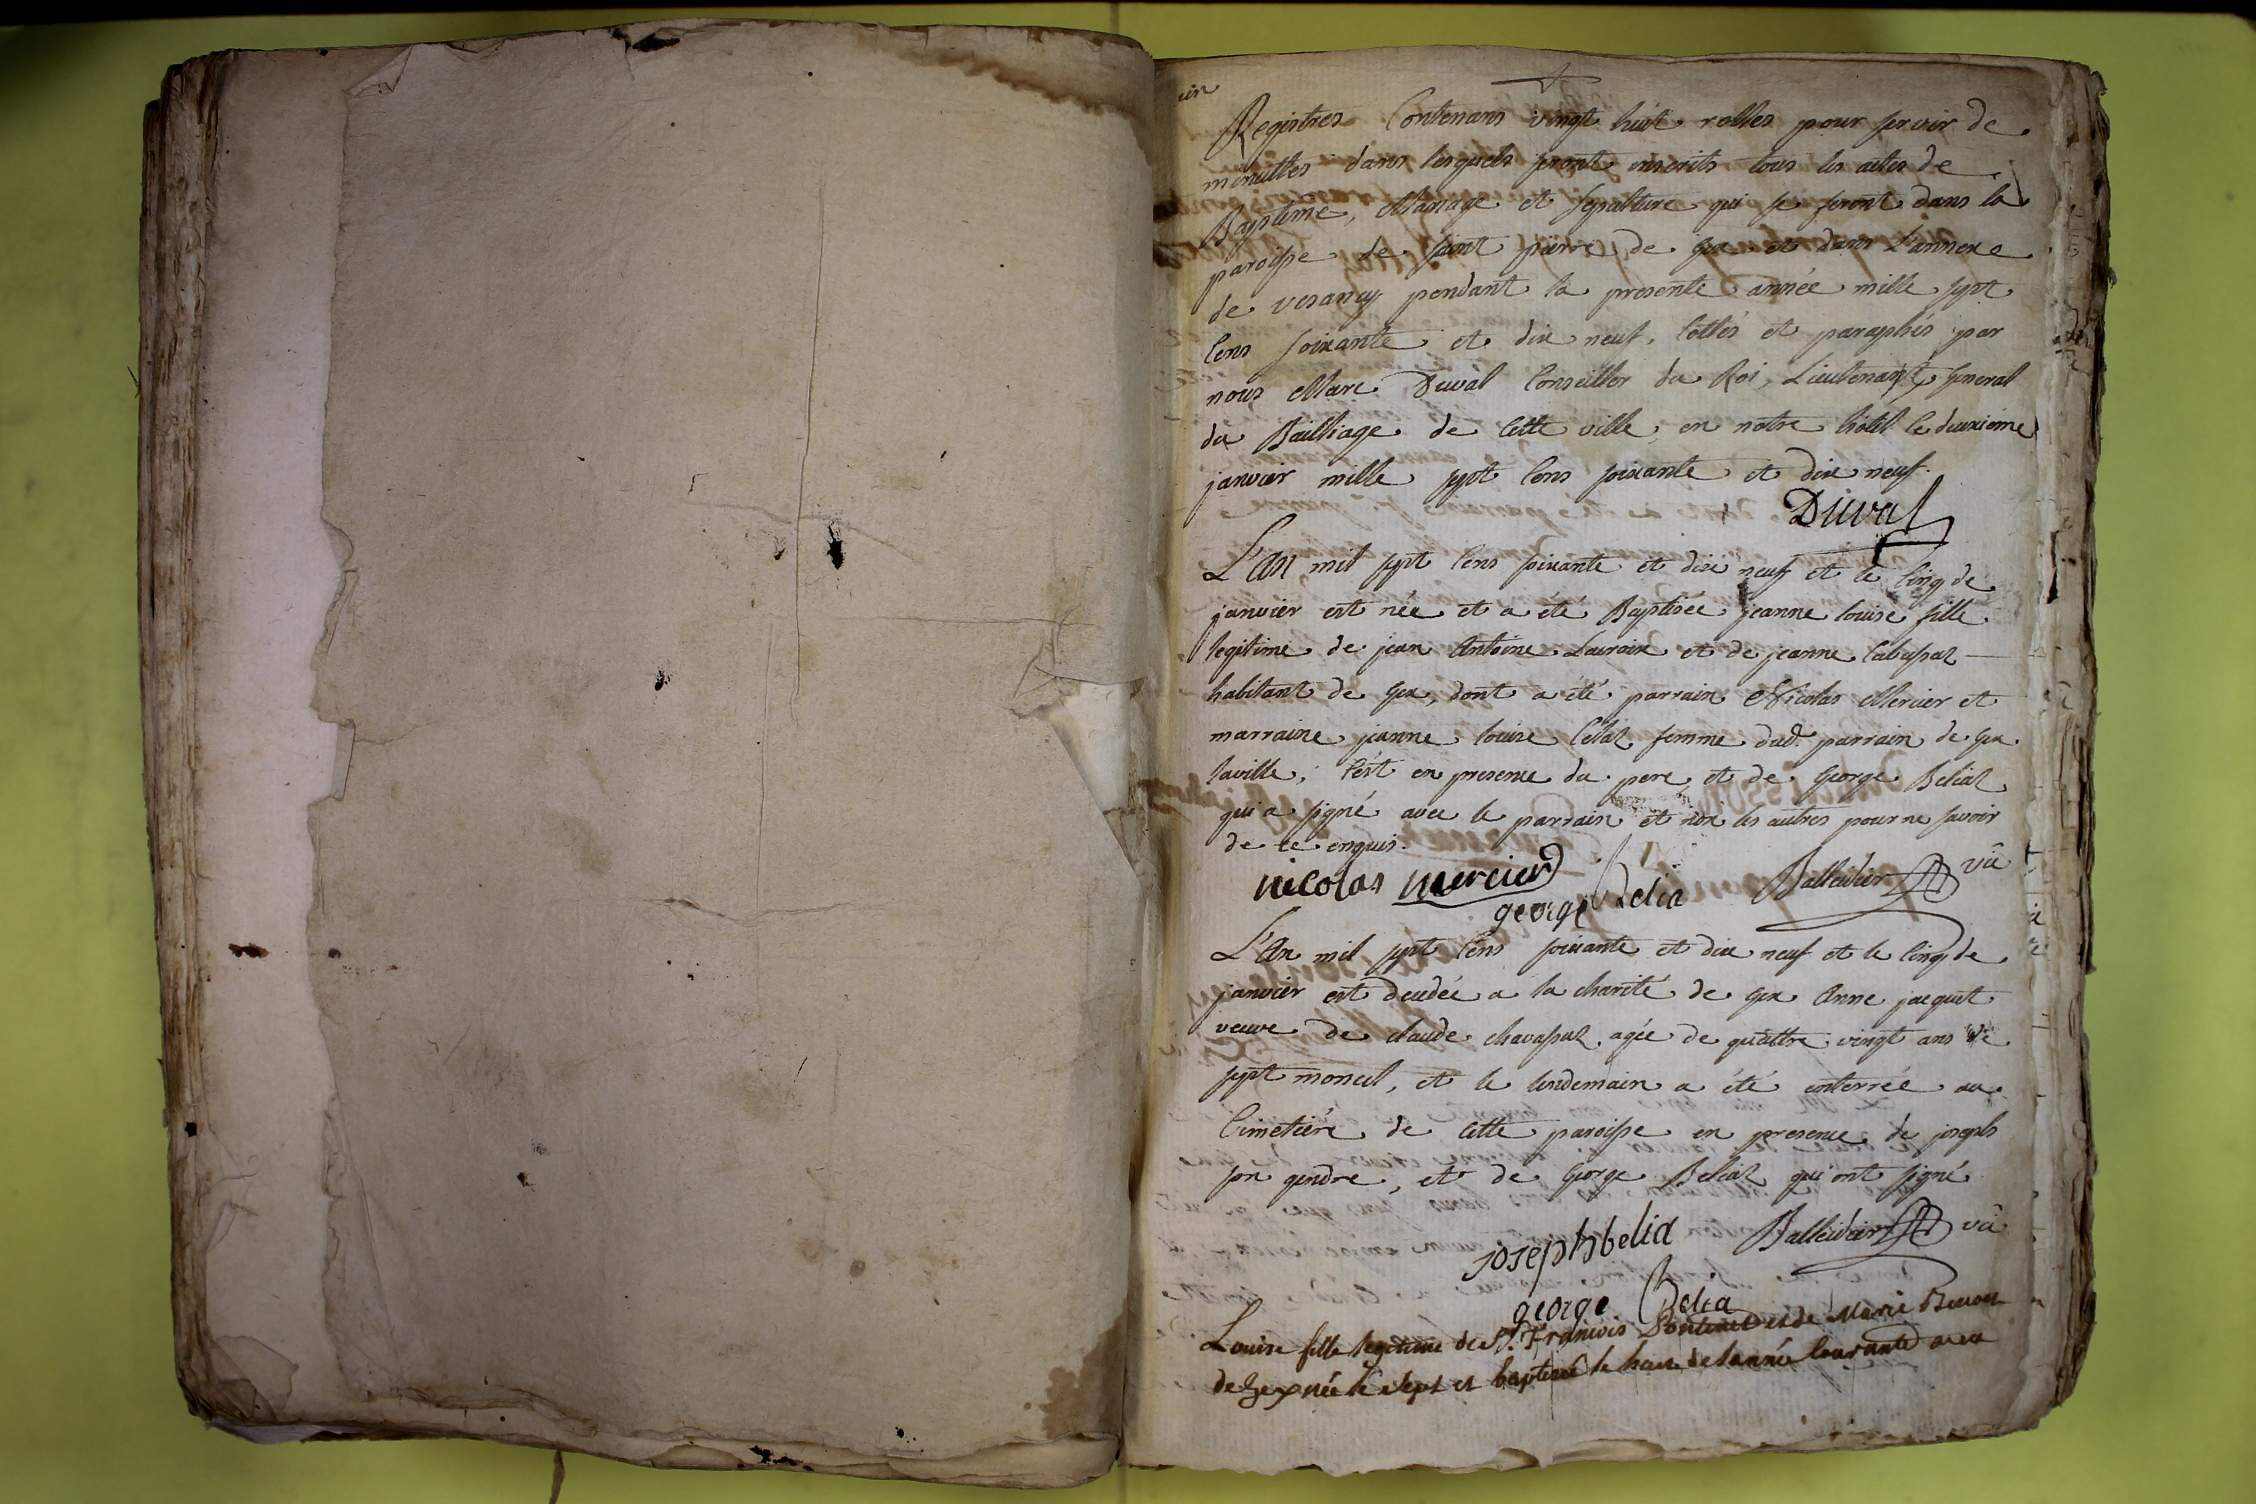 Registres Contenans vingt huit rolles pour servir de
minuttes dans lesquels seront inscrits tous les actes de
Baptême, Mariage et sepulture qui se feront dans la
paroisse de saint pierre de gex et dans L'annexe
de vesancy pendant la presente année mille sept
cens soixante et dix neuf, cottés et paraphés par
nous Marc Duval Conseiller du Roi, Lieutenant general
du Bailliage de cette ville, en notre hôtel le deuxieme
janvier mille sept cens soixante et dix neuf.
Duval
L'An mil sept cens soixante et dix neuf et le cinq de
janvier est née et a été Baptisée jeanne louise fille
legitime de jean Antoine Lauraix et de jeanne
habitant de gex, dont a été parrain Nicolas Mercier et
marraine jeanne louise femme dud. parrain de gex
laville, c'est en presence du pere, et de george Beliaz
qui a signé avec le parrain et non les autres pour ne savoir
de ce enquis.
nicolas mercier
george Belia Balleidier vic
L'An mil sept cens soixante et dix neuf et le cinq de
janvier est decedée a la charité de gex Anne jacquet
veuve de claude chavassuz agée de quattre vingt ans de
sept moncel, et le lendemain a été enterrée au
Cimetiére de cette paroisse en presence de joseph
son gendre, et de George Beliaz qui ont signé
joseph belia Balleidier vic
george Belia
Louise fille legitime de Sr. François et de Marie
de Gex née le sept et baptisée le huit de l'année courante a eu